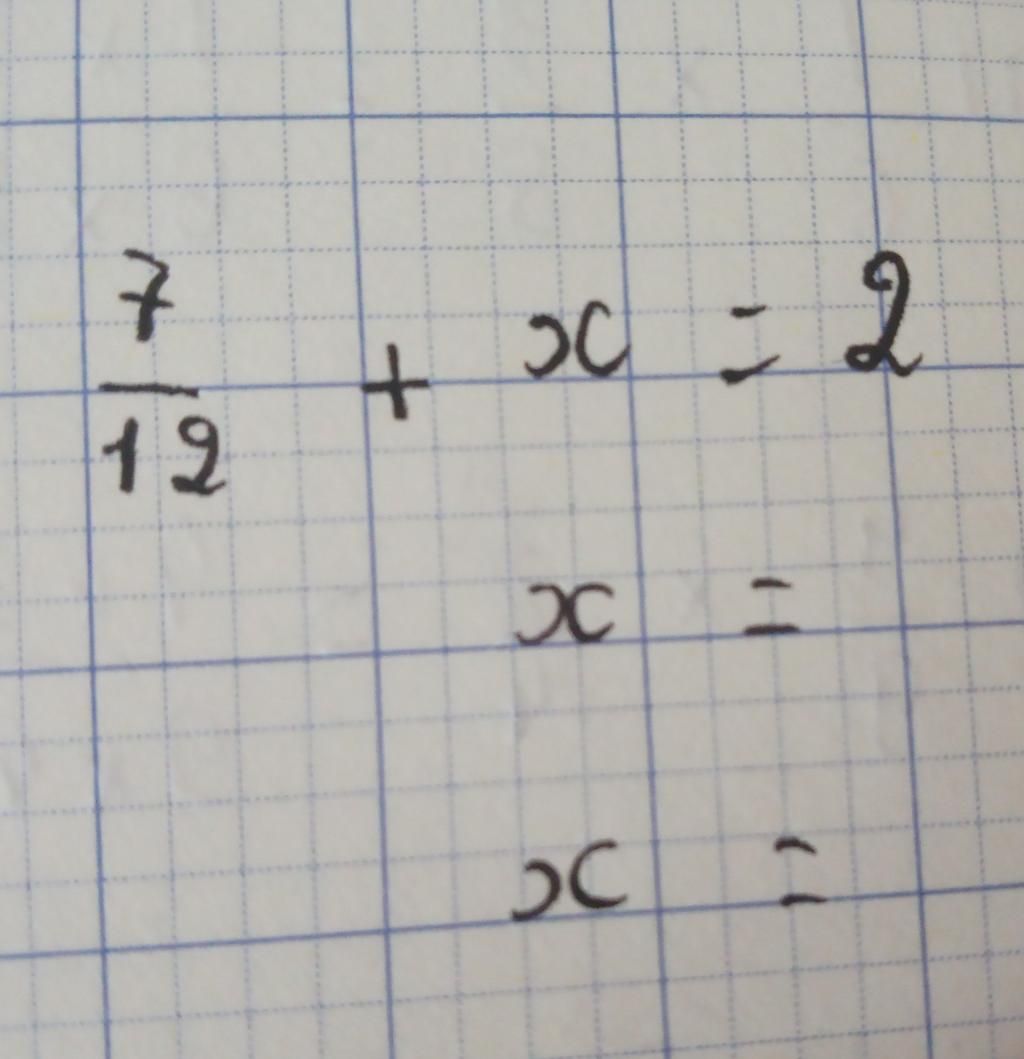 7/12 + x = 2
x =
x =